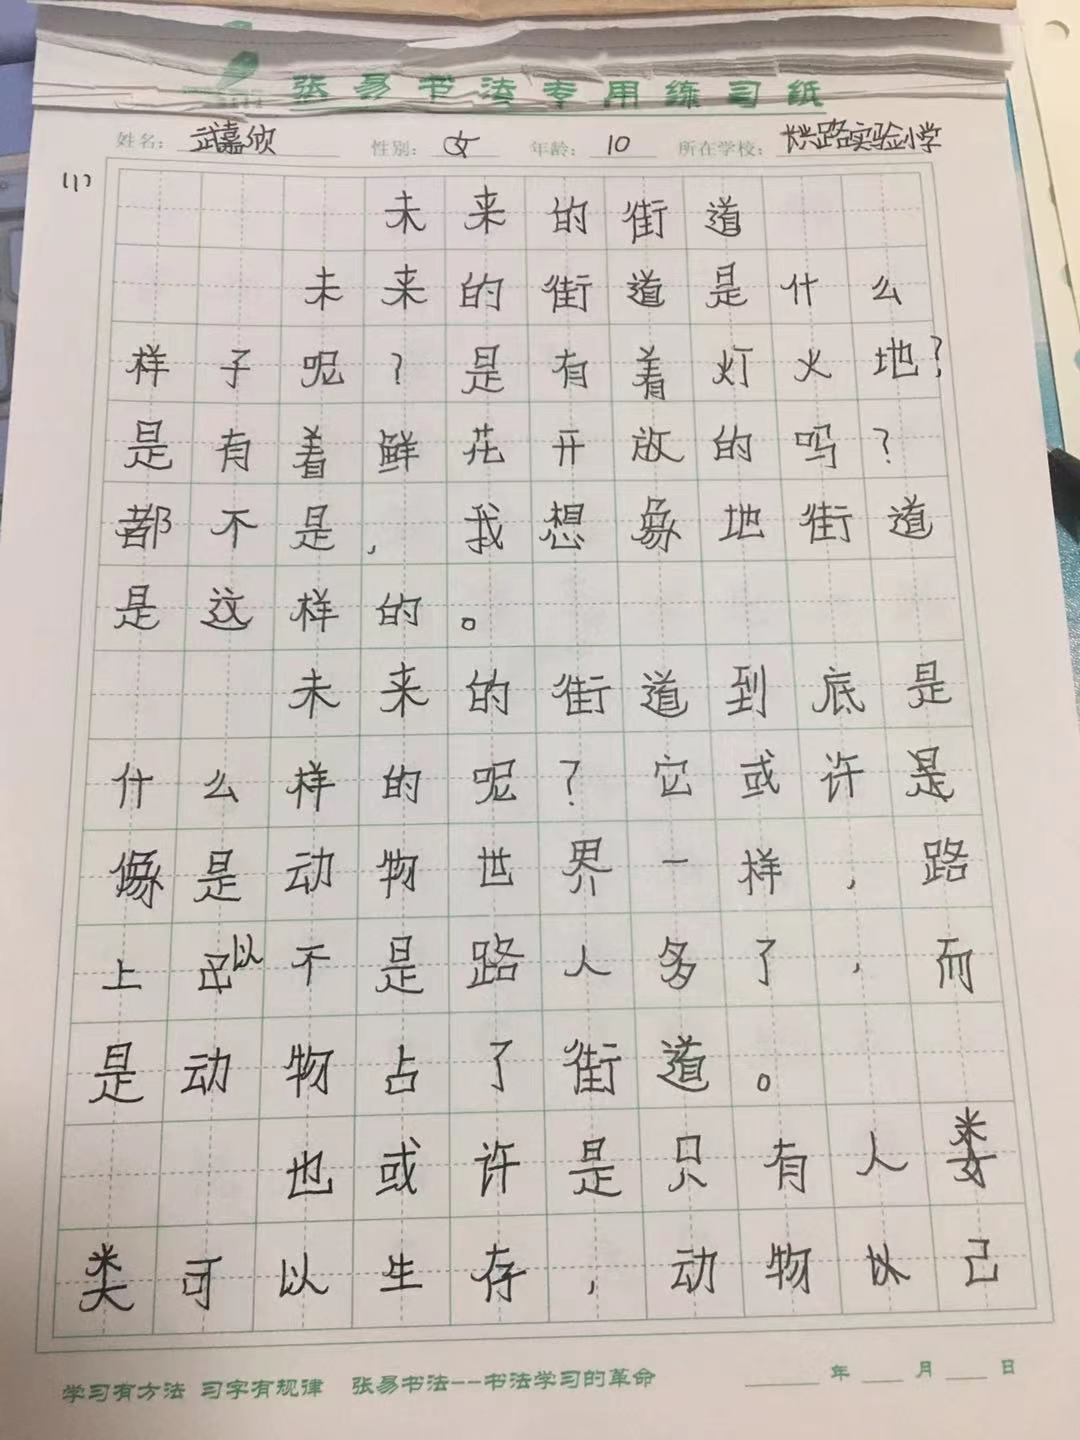 张易书法专用练习纸
姓名：武嘉欣 性别：女 年龄：10 所在学校：长兴路实验小学
(1)
未来的街道
未来的街道是什么
样子呢？是有着灯火地？
是有着鲜花开放的吗？
都不是，我想象地街道
是这样的。
未来的街道到底是
什么样的呢？它或许是
像是动物世界一样，路
上 以不是路人多了，而
是动物占了街道。
也或许是只有人娄
类可以生存，动物以己
学习有方法 习字有规律 张易书法--书法学习的革命 年 月 日